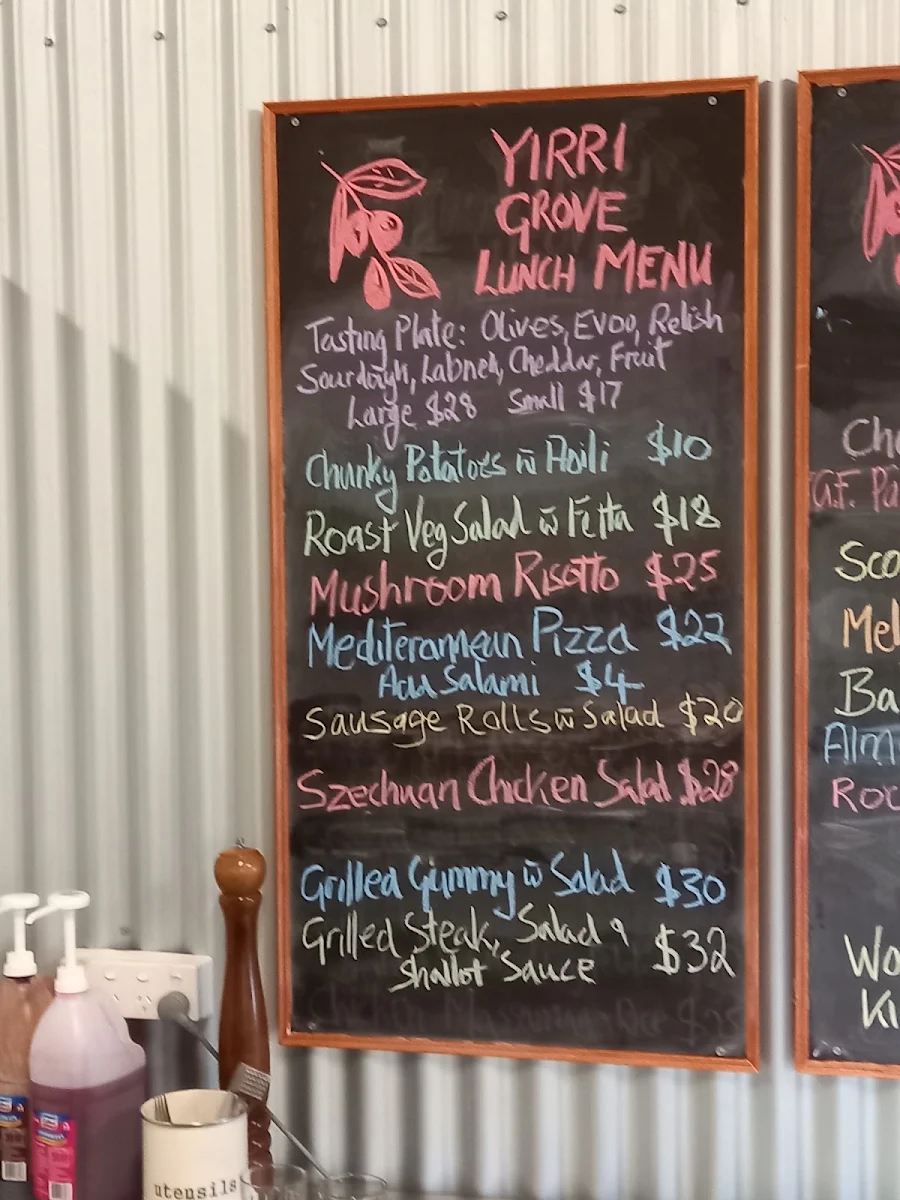 YIRRI
GROVE
LUNCH MENU
Tasting Plate: Olives, Evoo, Relish
Sourdough, Labneh, Cheddar, Fruit
Large $28 Small $17
Chunky Potatoes w̄ Aoili $10
Roast Veg Salad w̄ Fetta $18
Mushroom Risotto $25
Mediteranean Pizza $22
Add Salami $4
Sausage Rolls w̄ Salad $20
Szechuan Chicken Salad $28
Grilled Gummy w̄ Salad $30
Grilled Steak, Salad &
Shallot Sauce $32
Cho
G.F. Pa
Sco
Mel
Ba
Alm
Roc
Wo
Ki
utensils